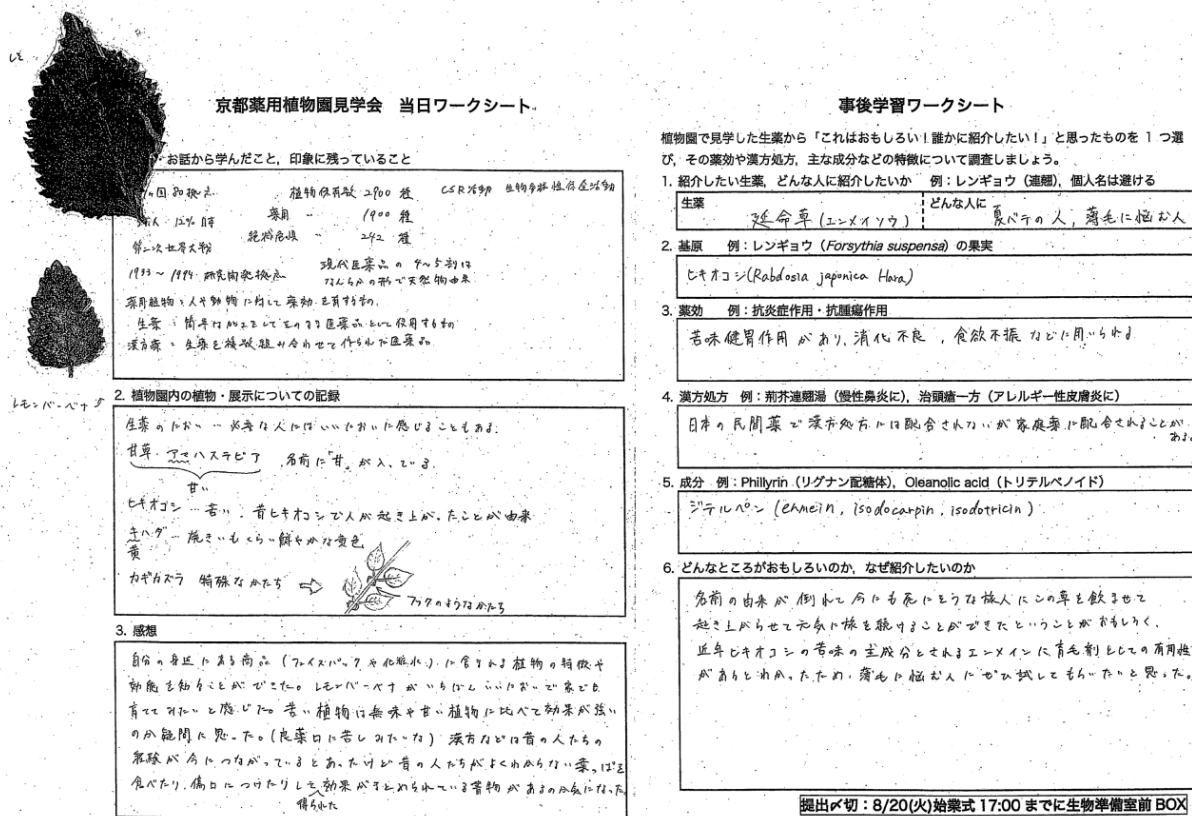 京都薬用植物園見学会 当日ワークシート
お話から学んだこと，印象に残っていること
植物保有数 2900 種 CSR活動 生物多様性保全活動
薬用 〃 1900 種
絶滅危惧 〃 242 種
第二次世界大戦
1933〜1994 研究開発拠点
現代医薬品の 4〜5割は
なんらかの形で天然物由来
薬用植物：人や動物に対して薬効を有するもの．
生薬：簡単な加工をしてそのまま医薬品として使用するもの
漢方薬：生薬を複数組み合わせて作られた医薬品
レモンバーベナ
2. 植物園内の植物・展示についての記録
生薬のにおい… 必要な人にはいいにおいに感じることもある．
甘草．アマハステビア 名前に「甘」が入っている
甘い
ヒキオコシ…苦い．昔ヒキオコシで人が起き上がったことが由来
キハダ…焼きいもくらい鮮やかな黄色
黄
カギカズラ 特殊なかたち ⇨
フックのようなかたち
3. 感想
自分の身近にある商品（フェイスパックや化粧水）に含まれる植物の特徴や
効能を知ることができた。レモンバーベナがいちばんいいにおいで家でも
育ててみたいと感じた。苦い植物は無味や甘い植物に比べて効果が強い
のか疑問に思った。(良薬口に苦しみたいな) 漢方などは昔の人たちの
経験が今につながっているとあったけど昔の人たちがよくわからない葉っぱを
食べたり，傷口につけたりして効果がまとめられている書物があるのか気になった
得られた
事後学習ワークシート
植物園で見学した生薬から「これはおもしろい！誰かに紹介したい！」と思ったものを 1 つ選
び，その薬効や漢方処方，主な成分などの特徴について調査しましょう。
1. 紹介したい生薬，どんな人に紹介したいか 例：レンギョウ（連翹），個人名は避ける
生薬 どんな人に
延命草（エンメイソウ） 夏バテの人，薄毛に悩む人
2. 基原 例：レンギョウ（Forsythia suspensa）の果実
ヒキオコシ(Rabdosia japonica Hara)
3. 薬効 例：抗炎症作用・抗腫瘍作用
苦味健胃作用があり，消化不良，食欲不振などに用いられる
4. 漢方処方 例：荊芥連翹湯（慢性鼻炎に），治頭瘡一方（アレルギー性皮膚炎に）
日本の民間薬で漢方処方には配合されないが家庭薬に配合されることが
ある
5. 成分 例：Phillyrin（リグナン配糖体），Oleanolic acid（トリテルペノイド）
ジテルペン (enmein, isodocarpin, isodotricin)
6. どんなところがおもしろいのか，なぜ紹介したいのか
名前の由来が倒れて今にも死にそうな旅人にこの草を飲ませて
起き上がらせて元気に旅を続けることができたということがおもしろく，
近年ヒキオコシの苦味の主成分とされるエンメインに育毛剤としての有用性
があるとわかったため，薄毛に悩む人にぜひ試してもらいたいと思った。
提出〆切：8/20(火)始業式 17:00 までに生物準備室前 BOX